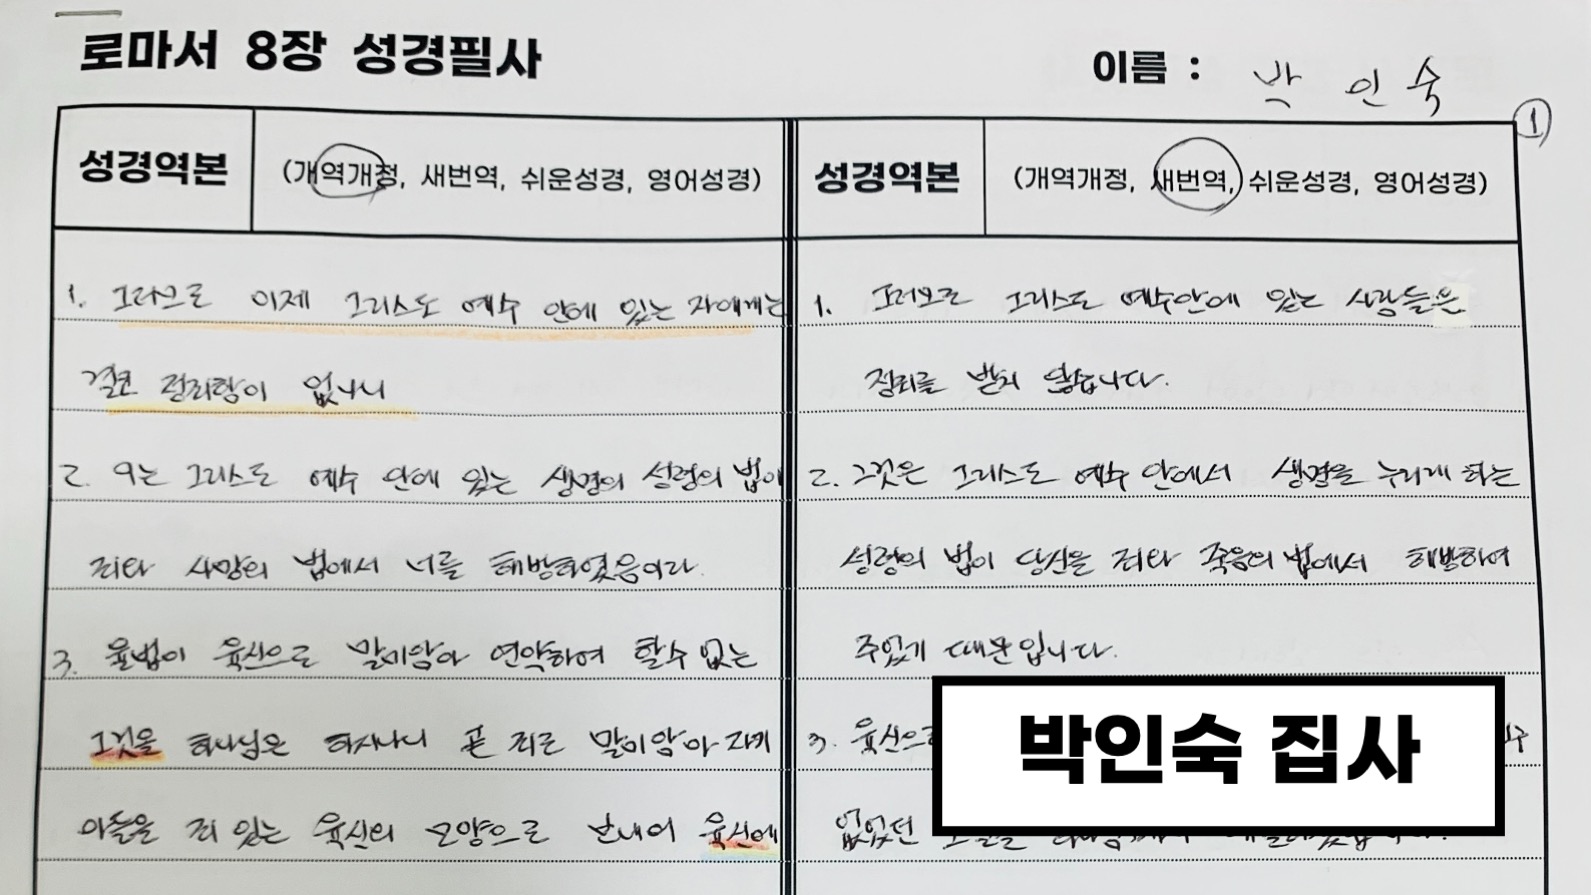 로마서 8장 성경필사
이름 : 박 인 숙
1
성경역본 (개역개정, 새번역, 쉬운성경, 영어성경)
1. 그러므로 이제 그리스도 예수 안에 있는 자에게는
결코 정죄함이 없나니
2. 이는 그리스도 예수 안에 있는 생명의 성령의 법이
죄와 사망의 법에서 너를 해방하였음이라
3. 율법이 육신으로 말미암아 연약하여 할 수 없는
그것을 하나님은 하시나니 곧 죄로 말미암아 자기
아들을 죄 있는 육신의 모양으로 보내어 육신에
성경역본 (개역개정, 새번역, 쉬운성경, 영어성경)
1. 그러므로 그리스도 예수 안에 있는 사람들은
정죄를 받지 않습니다.
2. 그것은 그리스도 예수 안에서 생명을 누리게 하는
성령의 법이 당신을 죄와 죽음의 법에서 해방하여
주었기 때문입니다.
3. 육신으로
없었던
박인숙 집사